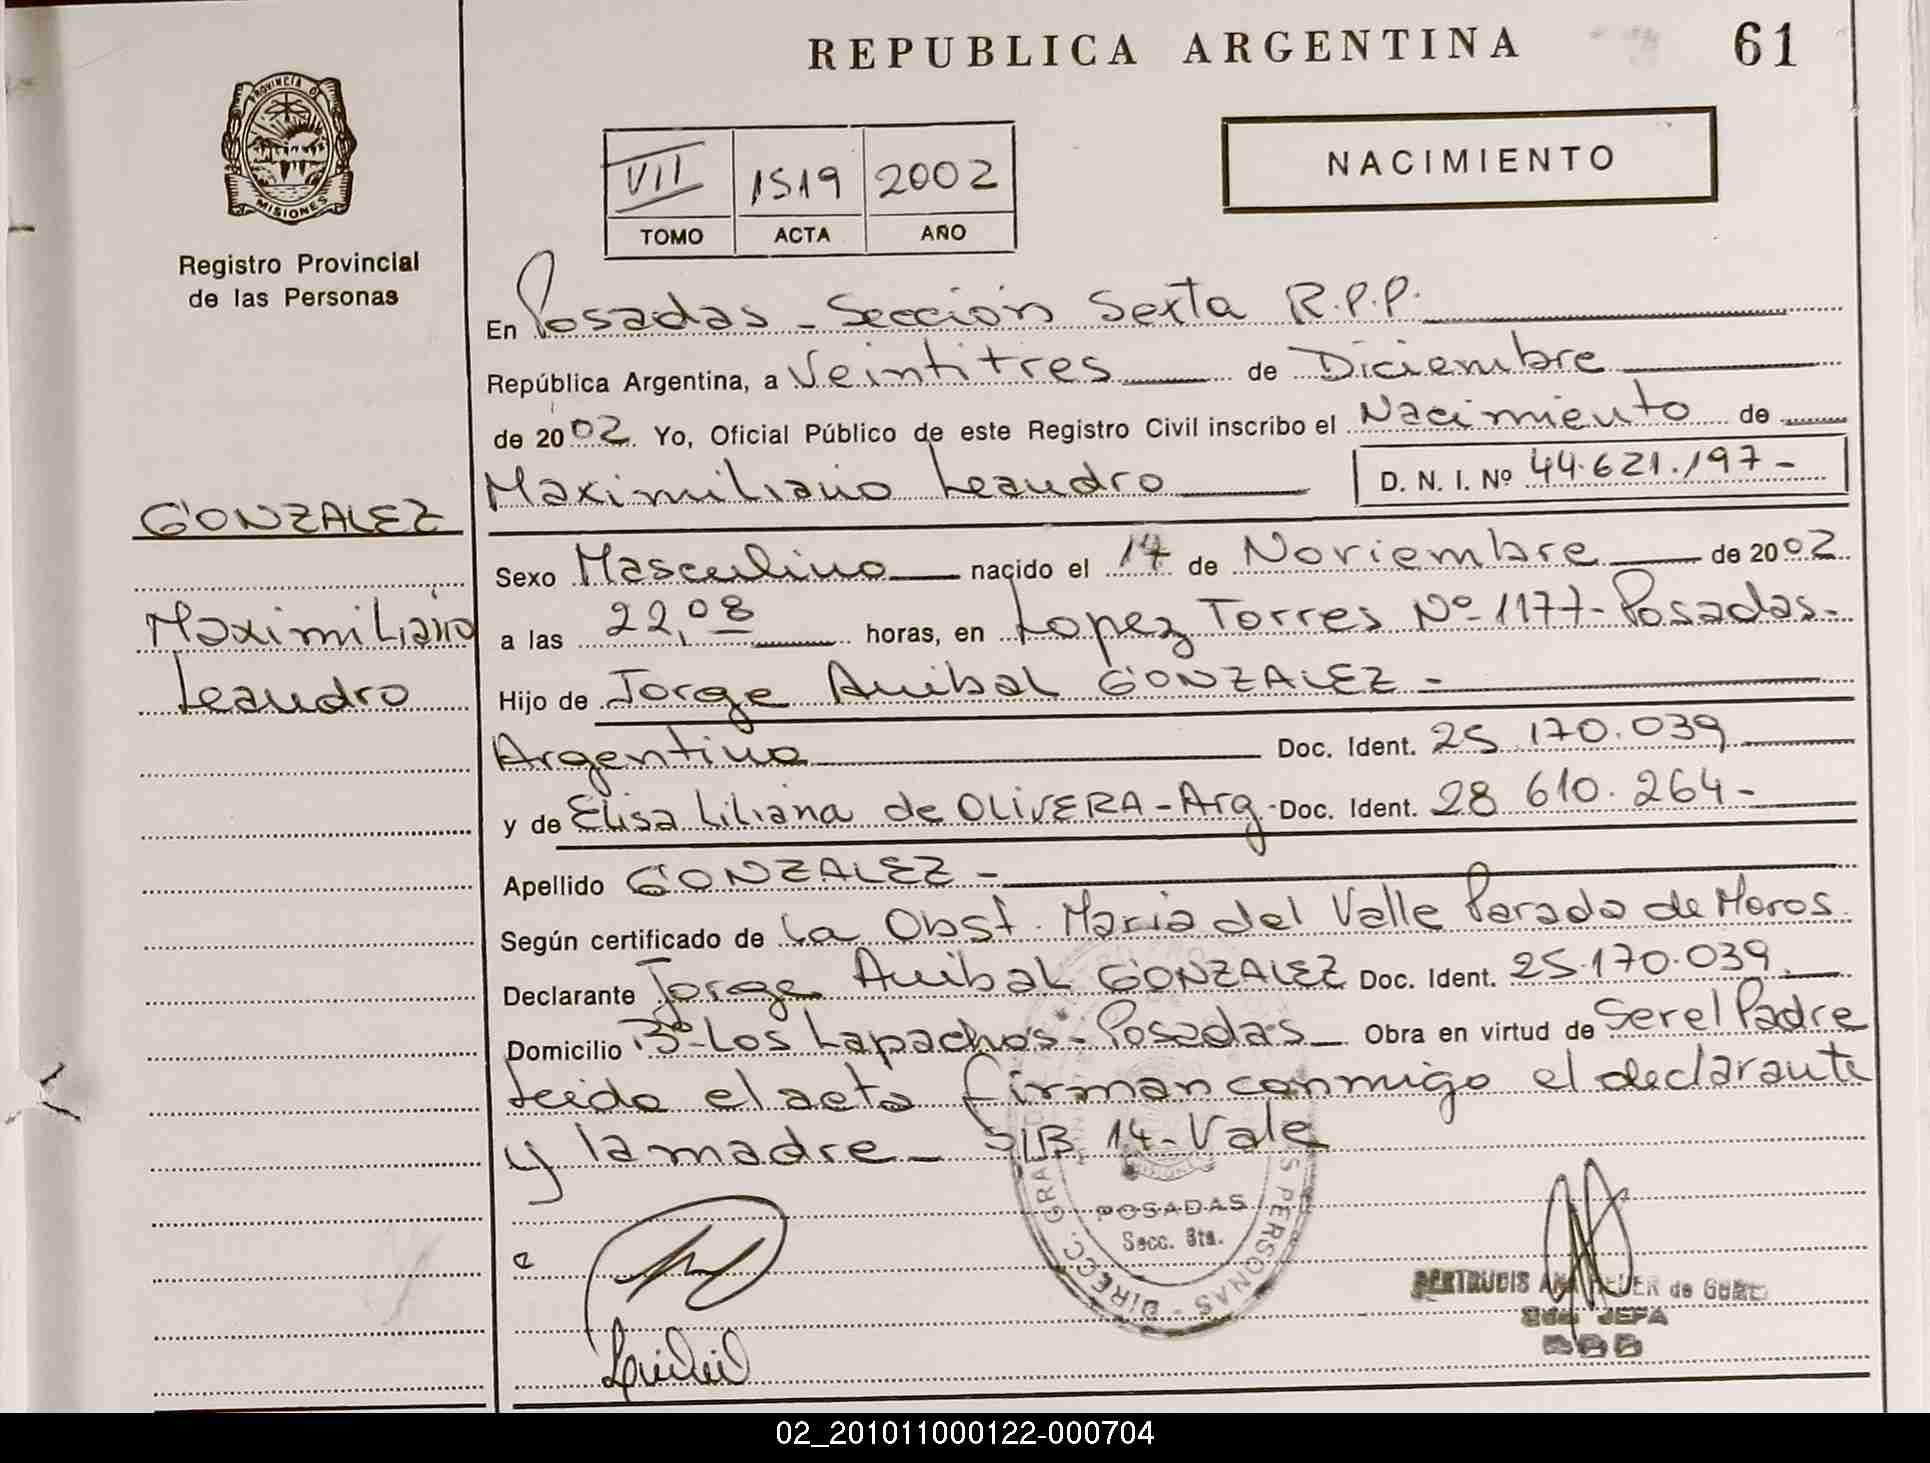 REPUBLICA ARGENTINA
61
PROVINCIA DE
MISIONES
Registro Provincial
de las Personas
VII 1519 2002
TOMO ACTA AÑO
NACIMIENTO
En Posadas - Sección Sexta R.P.P.
República Argentina, a Veintitres de Diciembre
de 2002. Yo, Oficial Público de este Registro Civil inscribo el Nacimiento de
Maximiliano Leandro
D. N. I. Nº 44.621.197-
GONZALEZ
Maximiliano
Leandro
Sexo Masculino nacido el 14 de Noviembre de 2002
a las 22,08 horas, en Lopez Torres Nº 1177-Posadas-
Hijo de Jorge Anibal GONZALEZ -
Argentino Doc. Ident. 25.170.039
y de Elisa Liliana de OLIVERA - Arg - Doc. Ident. 28 610.264-
Apellido GONZALEZ -
Según certificado de La Obst. Maria del Valle Parada de Meros
Declarante Jorge Anibal GONZALEZ Doc. Ident. 25.170.039
Domicilio Bº Los Lapachos - Posadas Obra en virtud de Ser el Padre
Leido el acta firman conmigo el declarante
y la madre - S/B 14 - Vale
POSADAS
Secc. 6ta.
DIRECC. GRAL
S PERSONAS
GERTRUDIS ANA de
JEFA
02_201011000122-000704